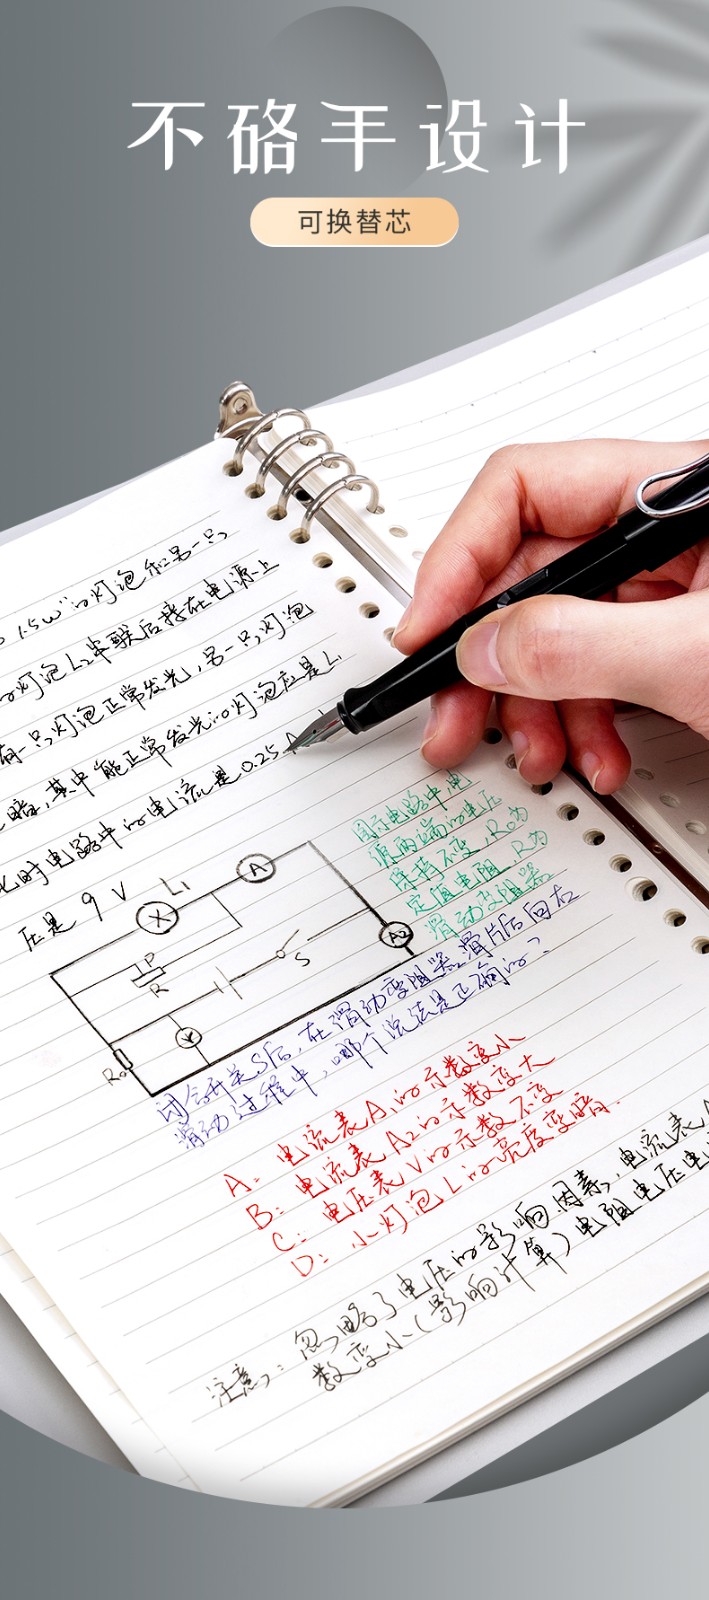 不硌手设计
可换替芯
1.5W"的灯泡和另一只
的灯泡L₂串联后接在电源上
有一只灯泡正常发光,另一只灯泡
暗,其中能正常发光的灯泡应是L₁
此时电路中的电流是0.25A
压是9V
L₁
A
X
P
R
S
A₂
V
R₀
图示电路中,电
源两端的电压
保持不变,R₀为
定值电阻,R为
滑动变阻器
闭合开关S后,在滑动变阻器滑片后向右
滑动过程中,哪个说法是正确的?
A: 电流表A₁的示数变小
B: 电流表A₂的示数变大
C: 电压表V的示数不变
D: 小灯泡L的亮度变暗.
注意: 忽略了电压的影响因素,电流表A
数变小(影响计算)电阻电压电